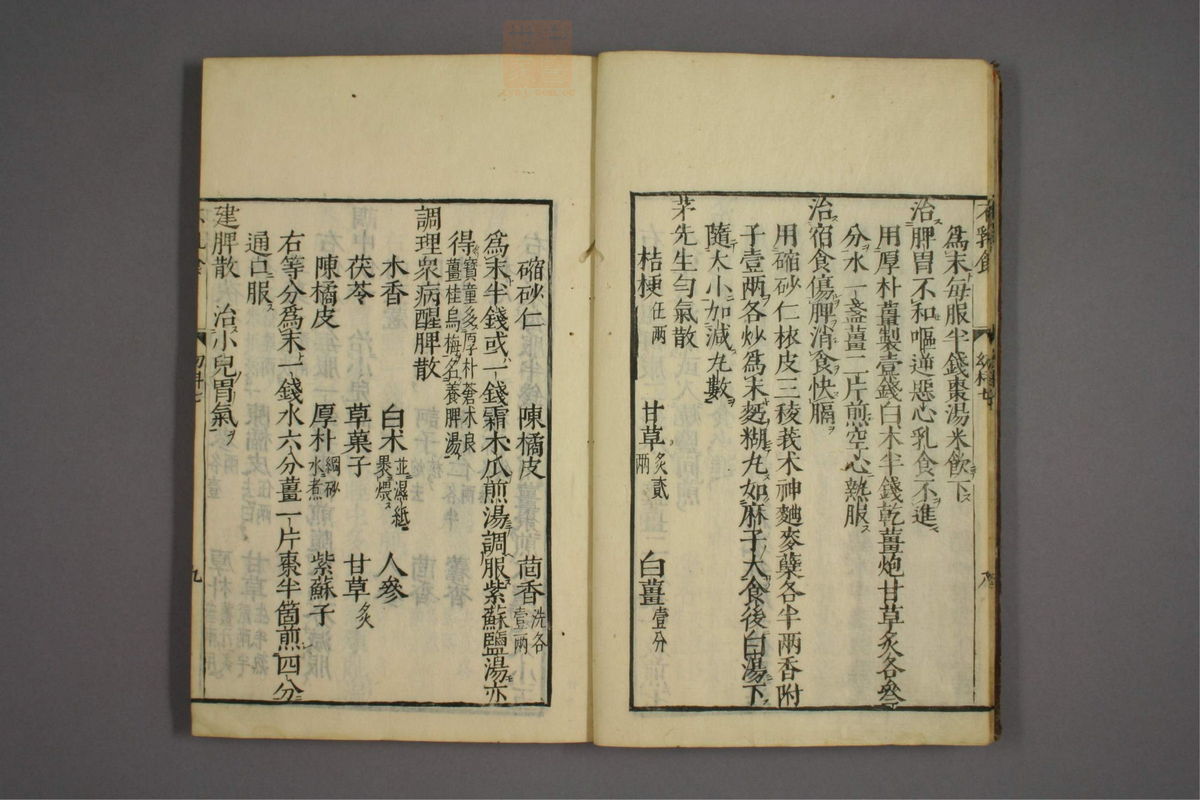 為末每服半錢棗湯米飲下
治脾胃不和嘔逆惡心乳食不進
用厚朴薑製壹錢白术半錢乾薑炮甘草炙各叄
分水一盞薑二片煎空心熱服
治宿食傷脾消食快膈
用縮砂仁栿皮三稜莪术神麯麥蘖各半兩香附
子壹兩各炒為末麪糊丸如麻子大食後白湯下
隨大小加減丸數
茅先生勻氣散
桔梗伍兩 甘草炙貳兩 白薑壹分
縮砂仁 陳橘皮 茴香洗各壹兩
為末半錢或一錢霜木瓜煎湯調服紫蘇鹽湯亦
得寶童多厚朴蒼术良薑桂烏梅名養脾湯
調理衆病醒脾散
木香 白术並濕紙裹煨 人參
茯苓 草菓子 甘草炙
陳橘皮 厚朴綱砂水煮 紫蘇子
右等分為末一錢水六分薑一片棗半箇煎四分
通口服
建脾散 治小兒胃氣
幼科七
九